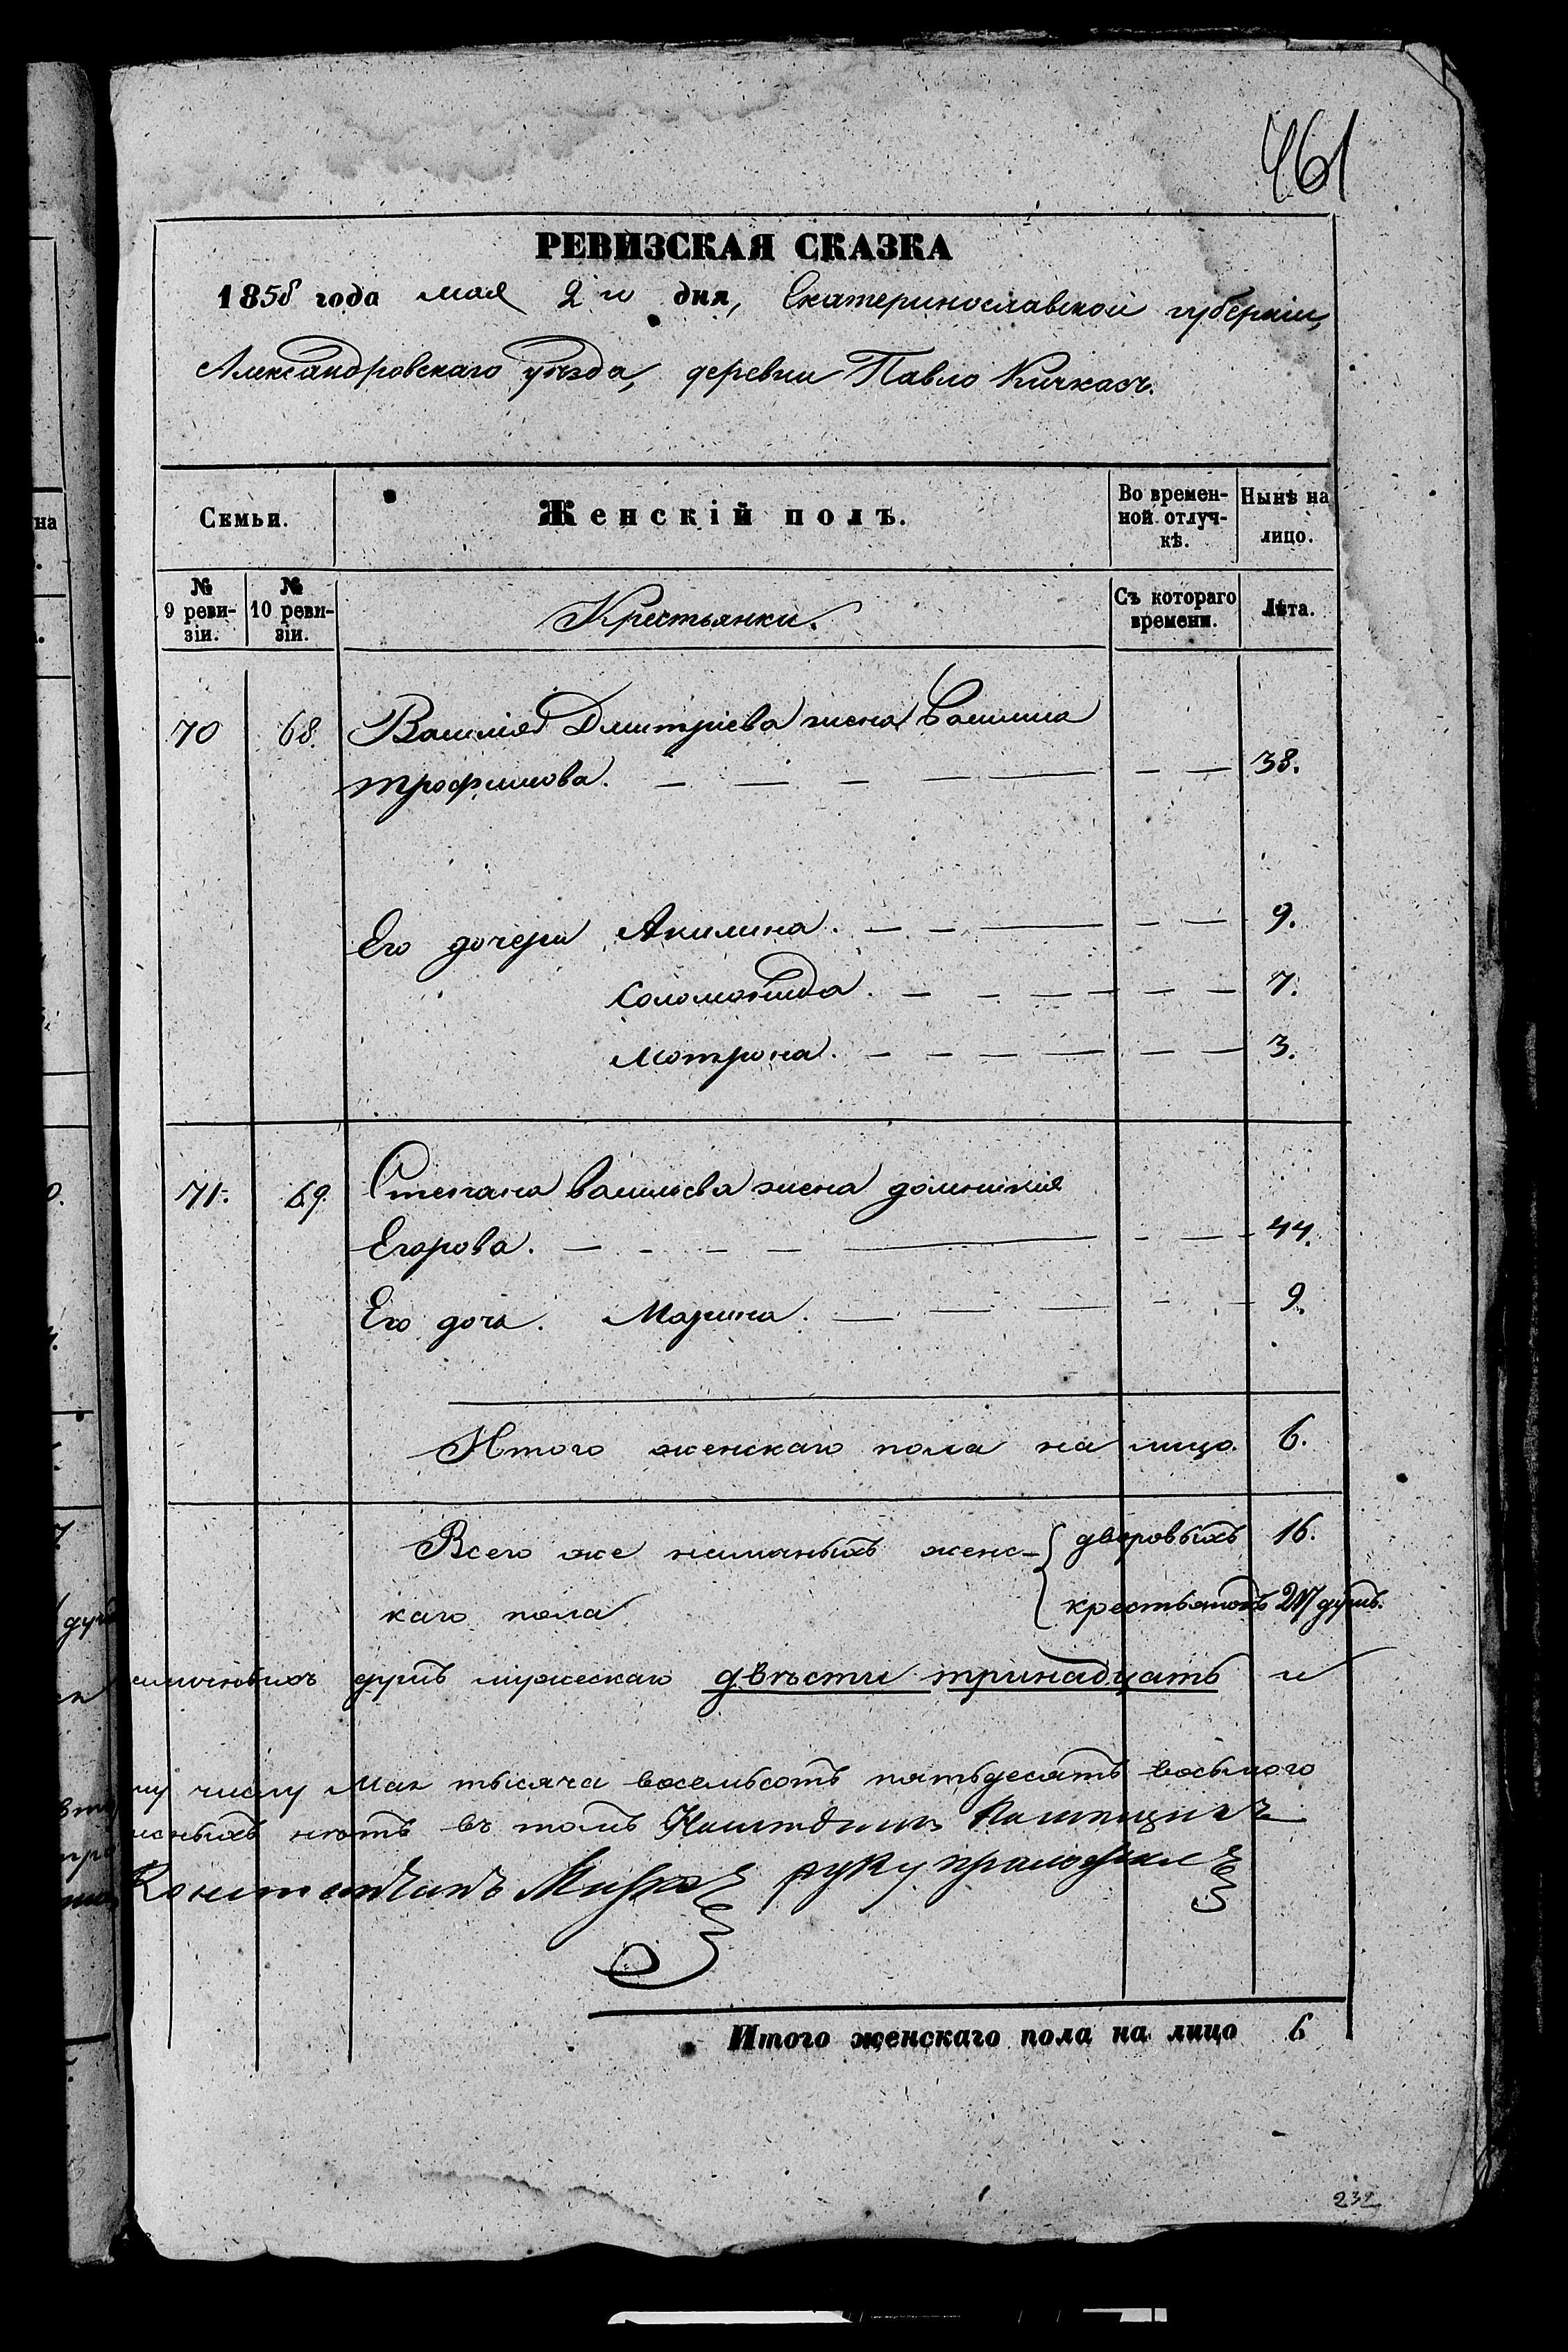 461
РЕВИЗСКАЯ СКАЗКА
1858 года мая 2 го дня, Екатеринославской губерніи,
Александровскаго уѣзда, деревни Павло Кичкасъ.
Семьи. Женскій полъ. Во времен-ной отлуч-кѣ. Нынѣ на лицо.
№ 9 реви-зіи. № 10 реви-зіи. Крестьянки. Съ котораго времени. Лѣта.
70 68. Василія Дмитріева жена Василиса
трофимова. 38.
Его дочери Акилина. 9.
Соломонида. 7.
Мотрона. 3.
71. 69. Степана васильева жена домникія
Егорова. 44.
Его дочь. Марина. 9.
Итого женскаго пола на лицо. 6.
Всего же наличныхъ женс- дворовыхъ 16.
каго пола крестьянокъ 217 душъ.
душъ мужескаго двѣсти тринадцать и
числу Мая тысяча восемьсотъ пятьдесятъ восьмого
нѣтъ въ томъ
Константинъ руку приложилъ
Итого женскаго пола на лицо 6
232